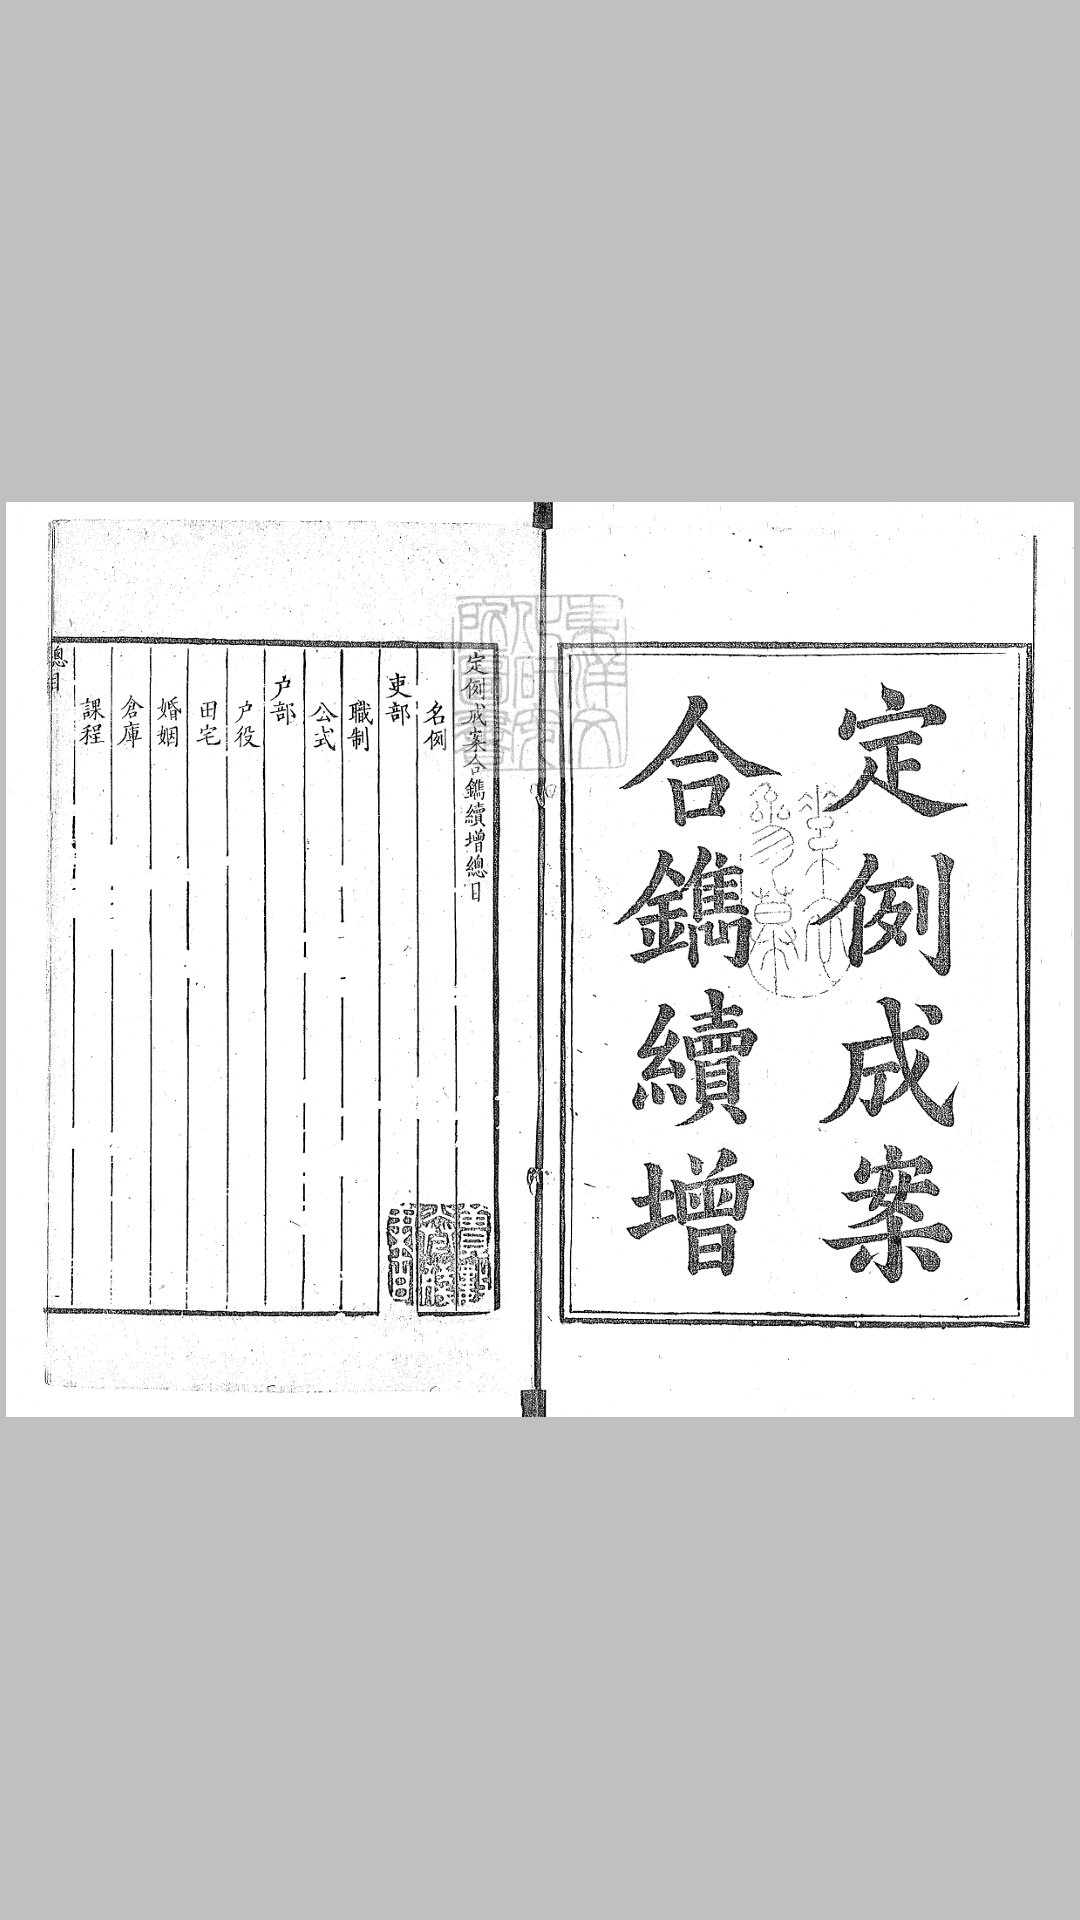 定例成案
合鐫續增
定例成案合鐫續增總目
名例
吏部
職制
公式
户部
户役
田宅
婚姻
倉庫
課程
總目